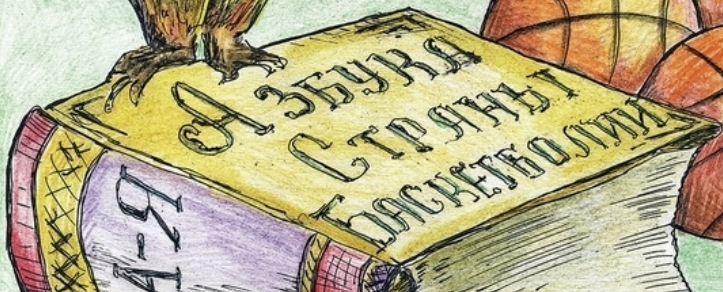 Азбука
Страны
Баскетболии
А-Я